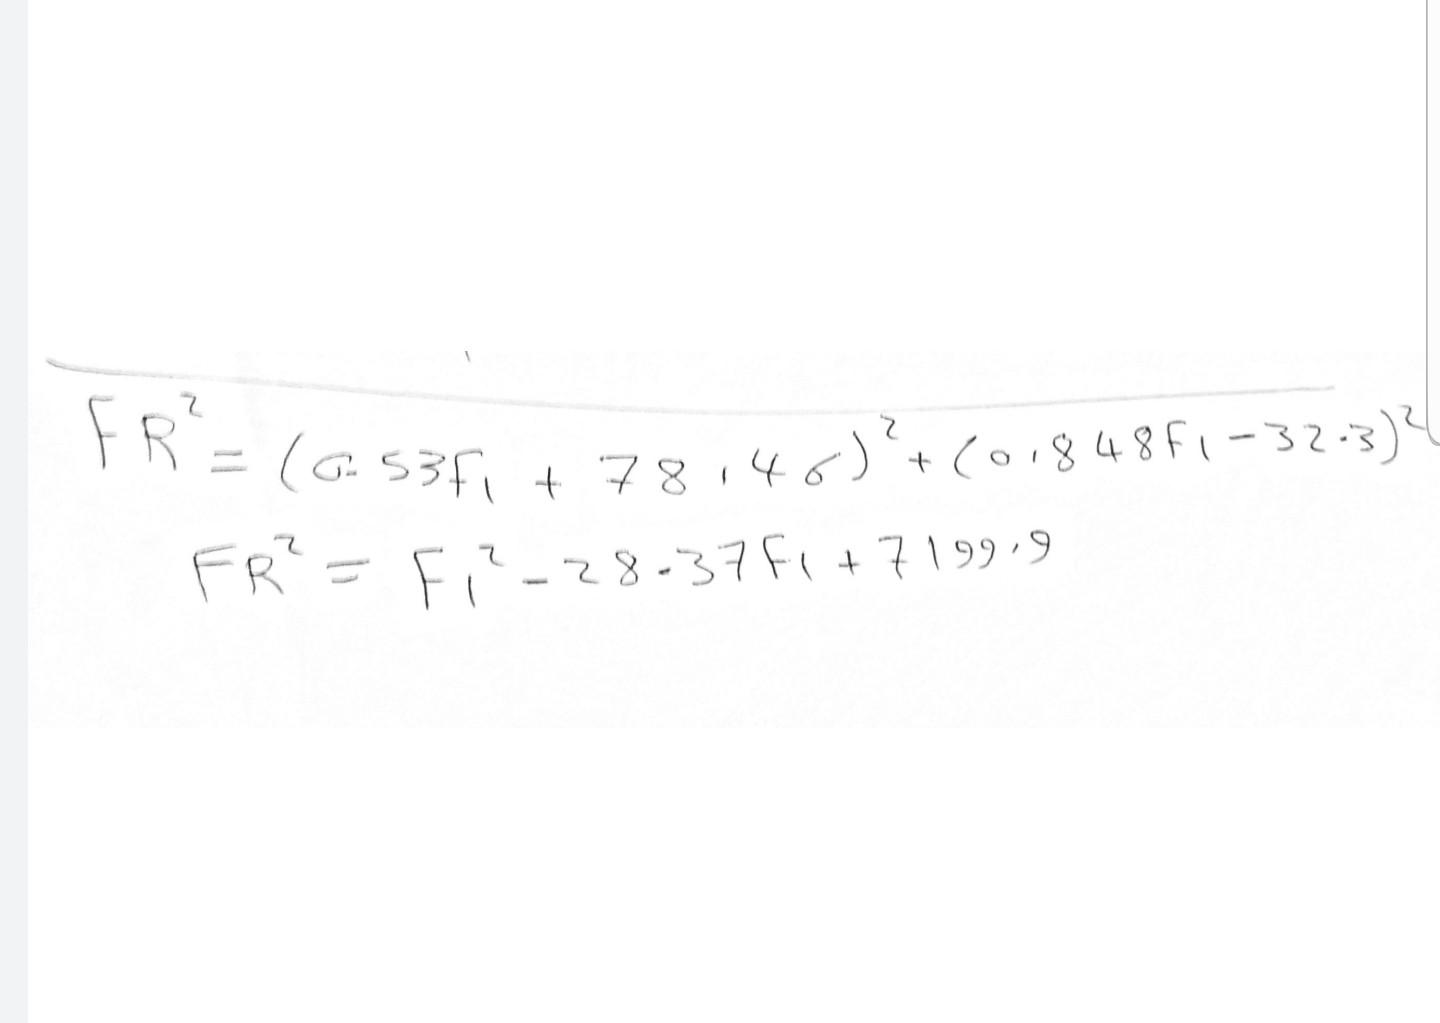 FR² = (0.53F₁ + 78.46)² + (0.848F₁ - 32.3)²
FR² = F₁² - 28.37F₁ + 7199.9